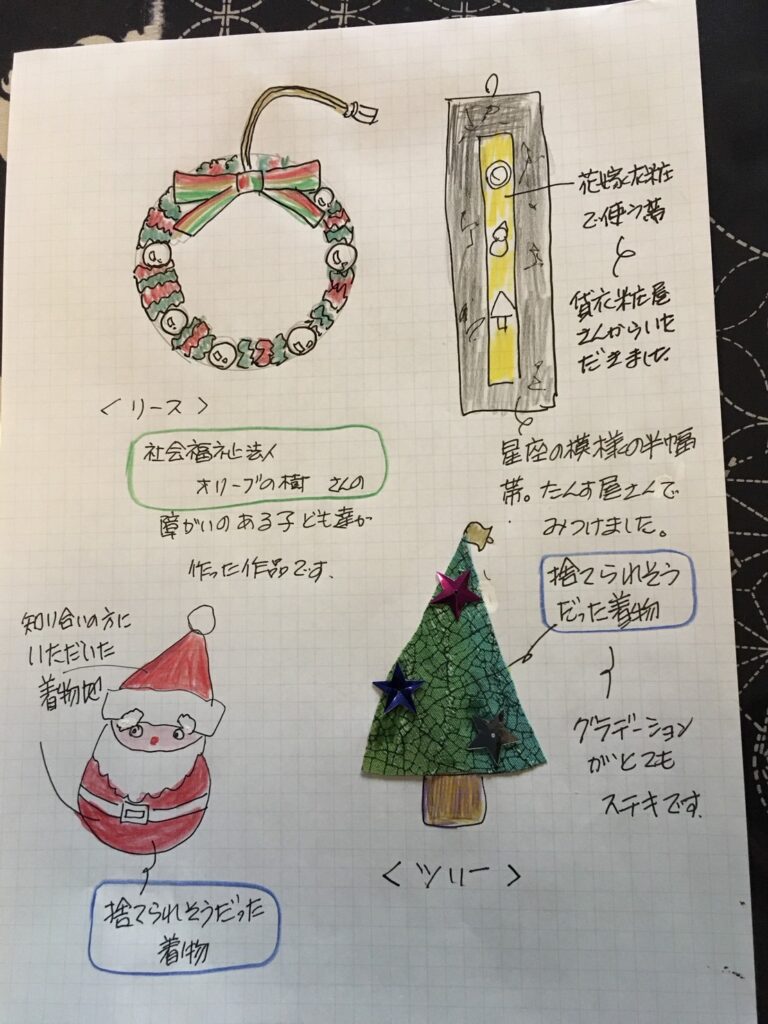 花嫁衣粧
で使う帯
貸衣粧屋
さんからいた
だきました
<リース>
社会福祉法人
オリーブの樹 さんの
障がいのある子ども達が
作った作品です.
星座の模様の半幅
帯。たんす屋さんで
みつけました。
捨てられそう
だった着物
グラデーション
がとても
ステキです.
知り合いの方に
いただいた
着物地
<ツリー>
捨てられそうだった
着物